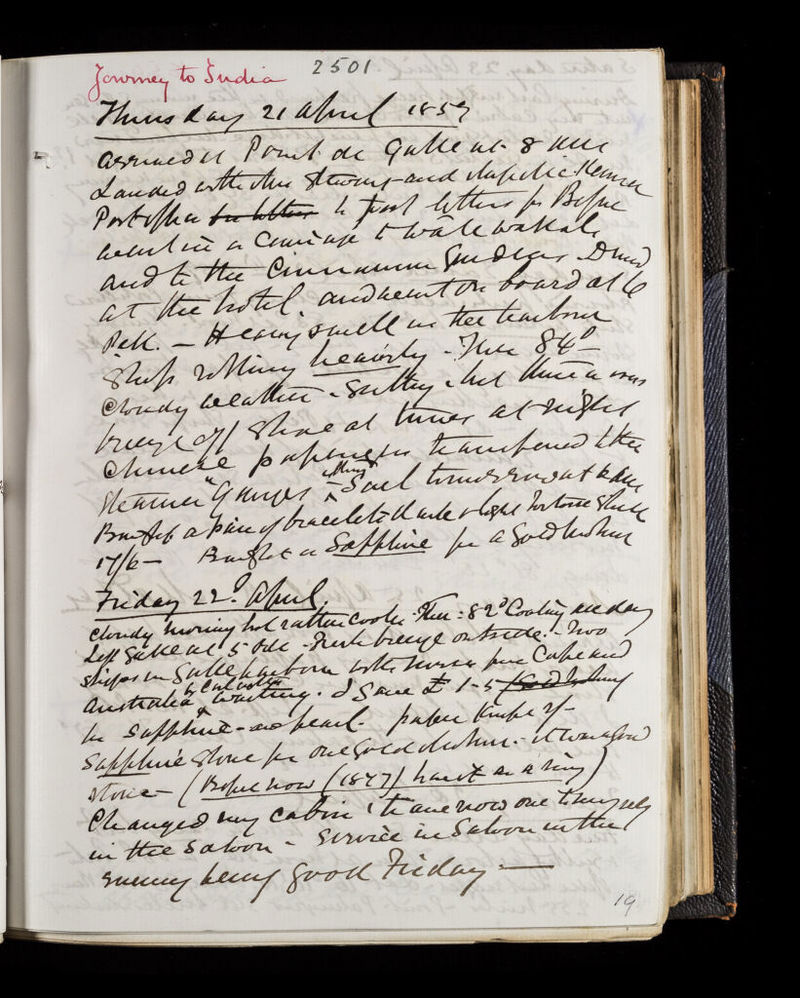 Journey to India 2501.
Thursday 21 April 1859
arrived at Point de Galle at 8 AM
Landed with the and
Post office to post letters for
went in a carriage to
and to the Cinnamon Gardens Dined
at the hotel. and went on board at 6
P.M. – Heavy swell in the harbour
Ship rolling heavily – Ther 84°
Cloudy weather – Sultry – but there was
breeze off Shore at times at night
Chinese passengers transferred to the
Steamer "Ganges" –
Bought a pair of bracelets dark & light Tortoise Shell
17/6 – Bought a Sapphire for a Gold Mohur
Friday 22d April.
cloudy morning hot rather cooler – Ther: 82° Coaling all day
Left Galle at 5 – Fresh breeze outside – Two
ships in Galle harbour with horses from Cape and
Australia to Calcutta waiting. I gave £ 1-5
for Sapphire – and pearl – paper Knife 2/-
Sapphire Stone for one gold Mohur – it was a good
stone – ( now (1877) has it as a ring)
Changed my cabin & have now one to myself
in the Saloon – Service in Saloon in the
evening being Good Friday –
19